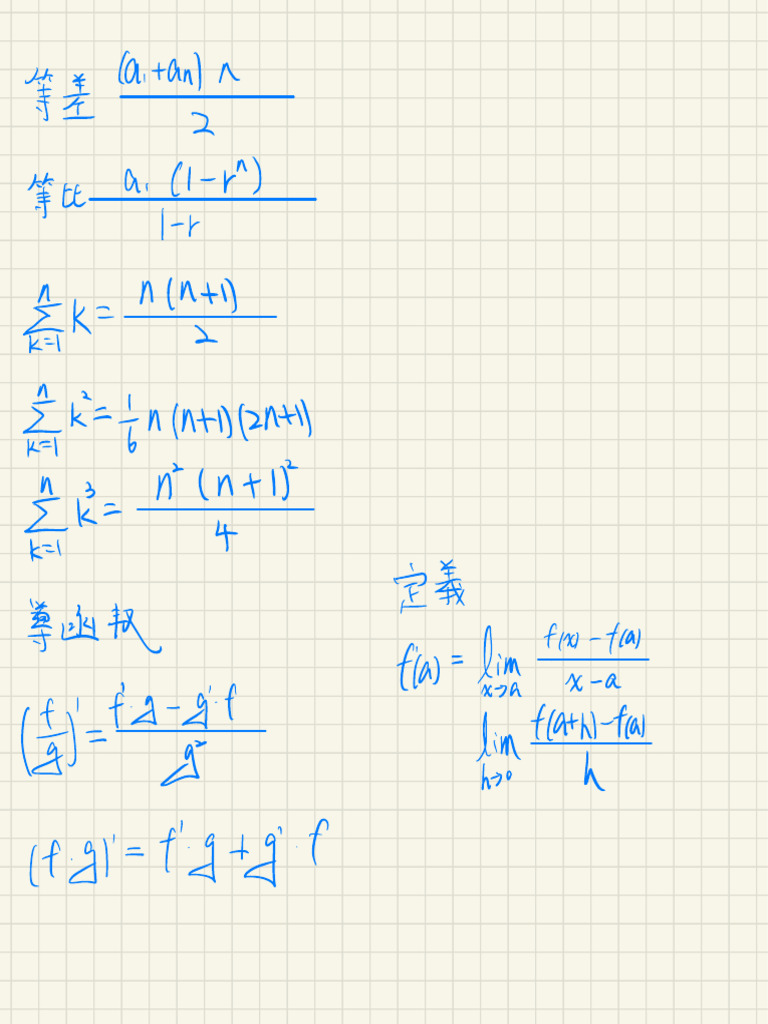 等差 (a₁+an) n / 2
等比 a₁ (1-rⁿ) / 1-r
∑_{k=1}^{n} k = n(n+1) / 2
∑_{k=1}^{n} k² = 1/6 n(n+1)(2n+1)
∑_{k=1}^{n} k³ = n²(n+1)² / 4
導函数
(f/g)' = f'·g - g'·f / g²
(f·g)' = f'·g + g'·f
定義
f'(a) = lim_{x→a} f(x)-f(a) / x-a
lim_{h→0} f(a+h)-f(a) / h